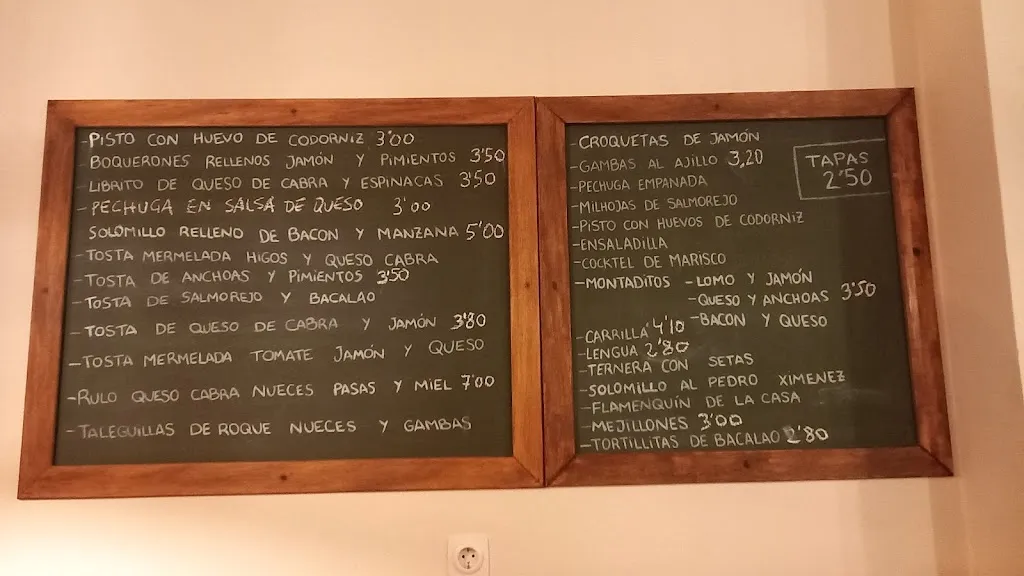 -PISTO CON HUEVO DE CODORNIZ 3'00
BOQUERONES RELLENOS JAMÓN Y PIMIENTOS 3'50
-LIBRITO DE QUESO DE CABRA Y ESPINACAS 3'50
-PECHUGA EN SALSA DE QUESO 3'00
SOLOMILLO RELLENO DE BACON Y MANZANA 5'00
-TOSTA MERMELADA HIGOS Y QUESO CABRA
-TOSTA DE ANCHOAS Y PIMIENTOS 3'50
-TOSTA DE SALMOREJO Y BACALAO
-TOSTA DE QUESO DE CABRA Y JAMÓN 3'80
-TOSTA MERMELADA TOMATE JAMÓN Y QUESO
-RULO QUESO CABRA NUECES PASAS Y MIEL 7'00
-TALEGUILLAS DE ROQUE NUECES Y GAMBAS
-CROQUETAS DE JAMÓN
-GAMBAS AL AJILLO 3,20
-PECHUGA EMPANADA
-MILHOJAS DE SALMOREJO
-PISTO CON HUEVOS DE CODORNIZ
-ENSALADILLA
-COCKTEL DE MARISCO
-MONTADITOS -LOMO Y JAMÓN
-QUESO Y ANCHOAS 3'50
-BACON Y QUESO
-CARRILLA 4'10
-LENGUA 2'80
-TERNERA CON SETAS
-SOLOMILLO AL PEDRO XIMENEZ
-FLAMENQUÍN DE LA CASA
-MEJILLONES 3'00
-TORTILLITAS DE BACALAO 2'80
TAPAS
2'50